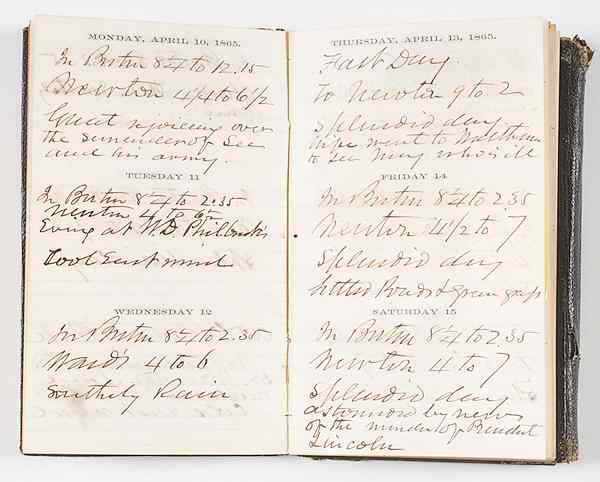 MONDAY, APRIL 10, 1865.
In Boston 8 1/4 to 12.15
Newton 4 1/4 to 6 1/2
Great rejoicing over
the surrender of Lee
and his army.
TUESDAY 11
In Boston 8 1/4 to 2.35
Newton 4 to 6 1/2
Eving at W.D. Philbrick's
Cool East wind
WEDNESDAY 12
In Boston 8 1/4 to 2.35
Ward's 4 to 6
Southerly Rain
THURSDAY, APRIL 13, 1865.
Fast Day.
to Newton 9 to 2
Splendid day
wife went to Waltham
to see Mary who is ill
FRIDAY 14
In Boston 8 1/4 to 2 35
Newton 4 1/2 to 7
Splendid day
Settled Roads & green grass
SATURDAY 15
In Boston 8 1/4 to 2.35
Newton 4 to 7
Splendid day
astonished by news
of the murder of President
Lincoln